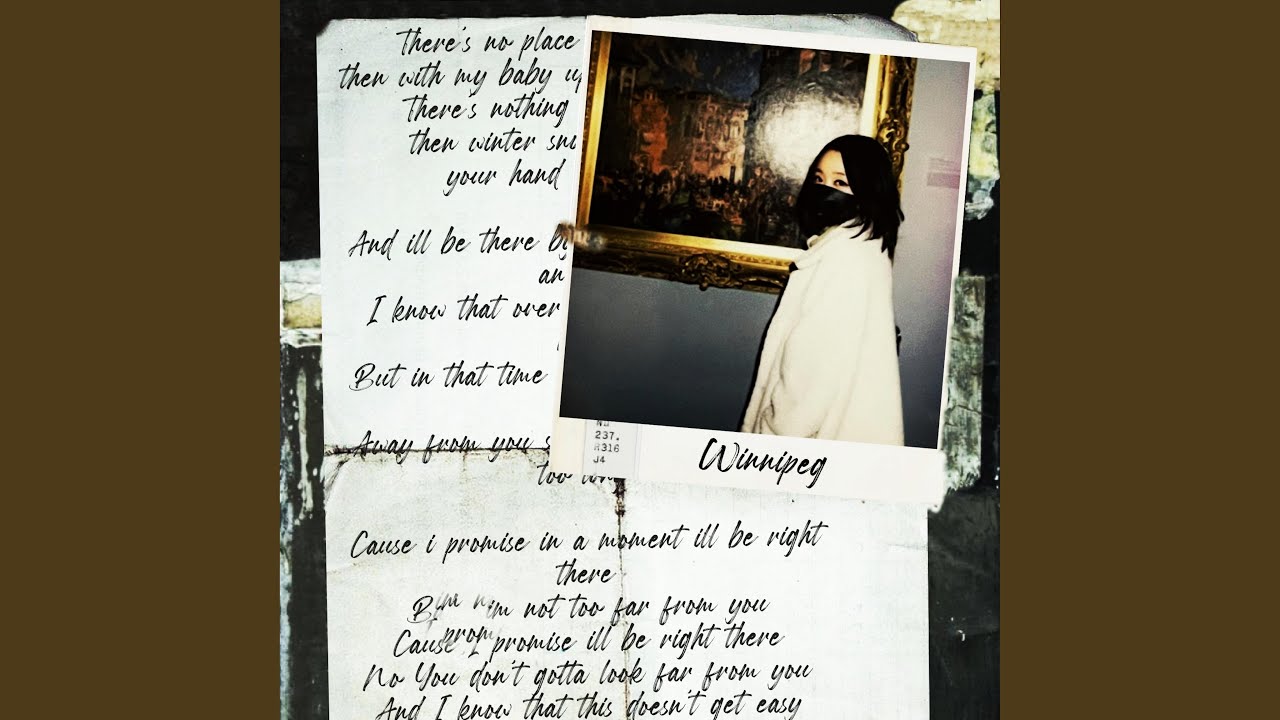 There's no place
then with my baby up
There's nothing
then winter sno
your hand
And ill be there by
an
I know that over
But in that time
Away from you s
too lon
NU
237.
R316
J4
Winnipeg
Cause i promise in a moment ill be right
there
im not too far from you
prom
Cause I promise ill be right there
No You don't gotta look far from you
And I know that this doesn't get easy